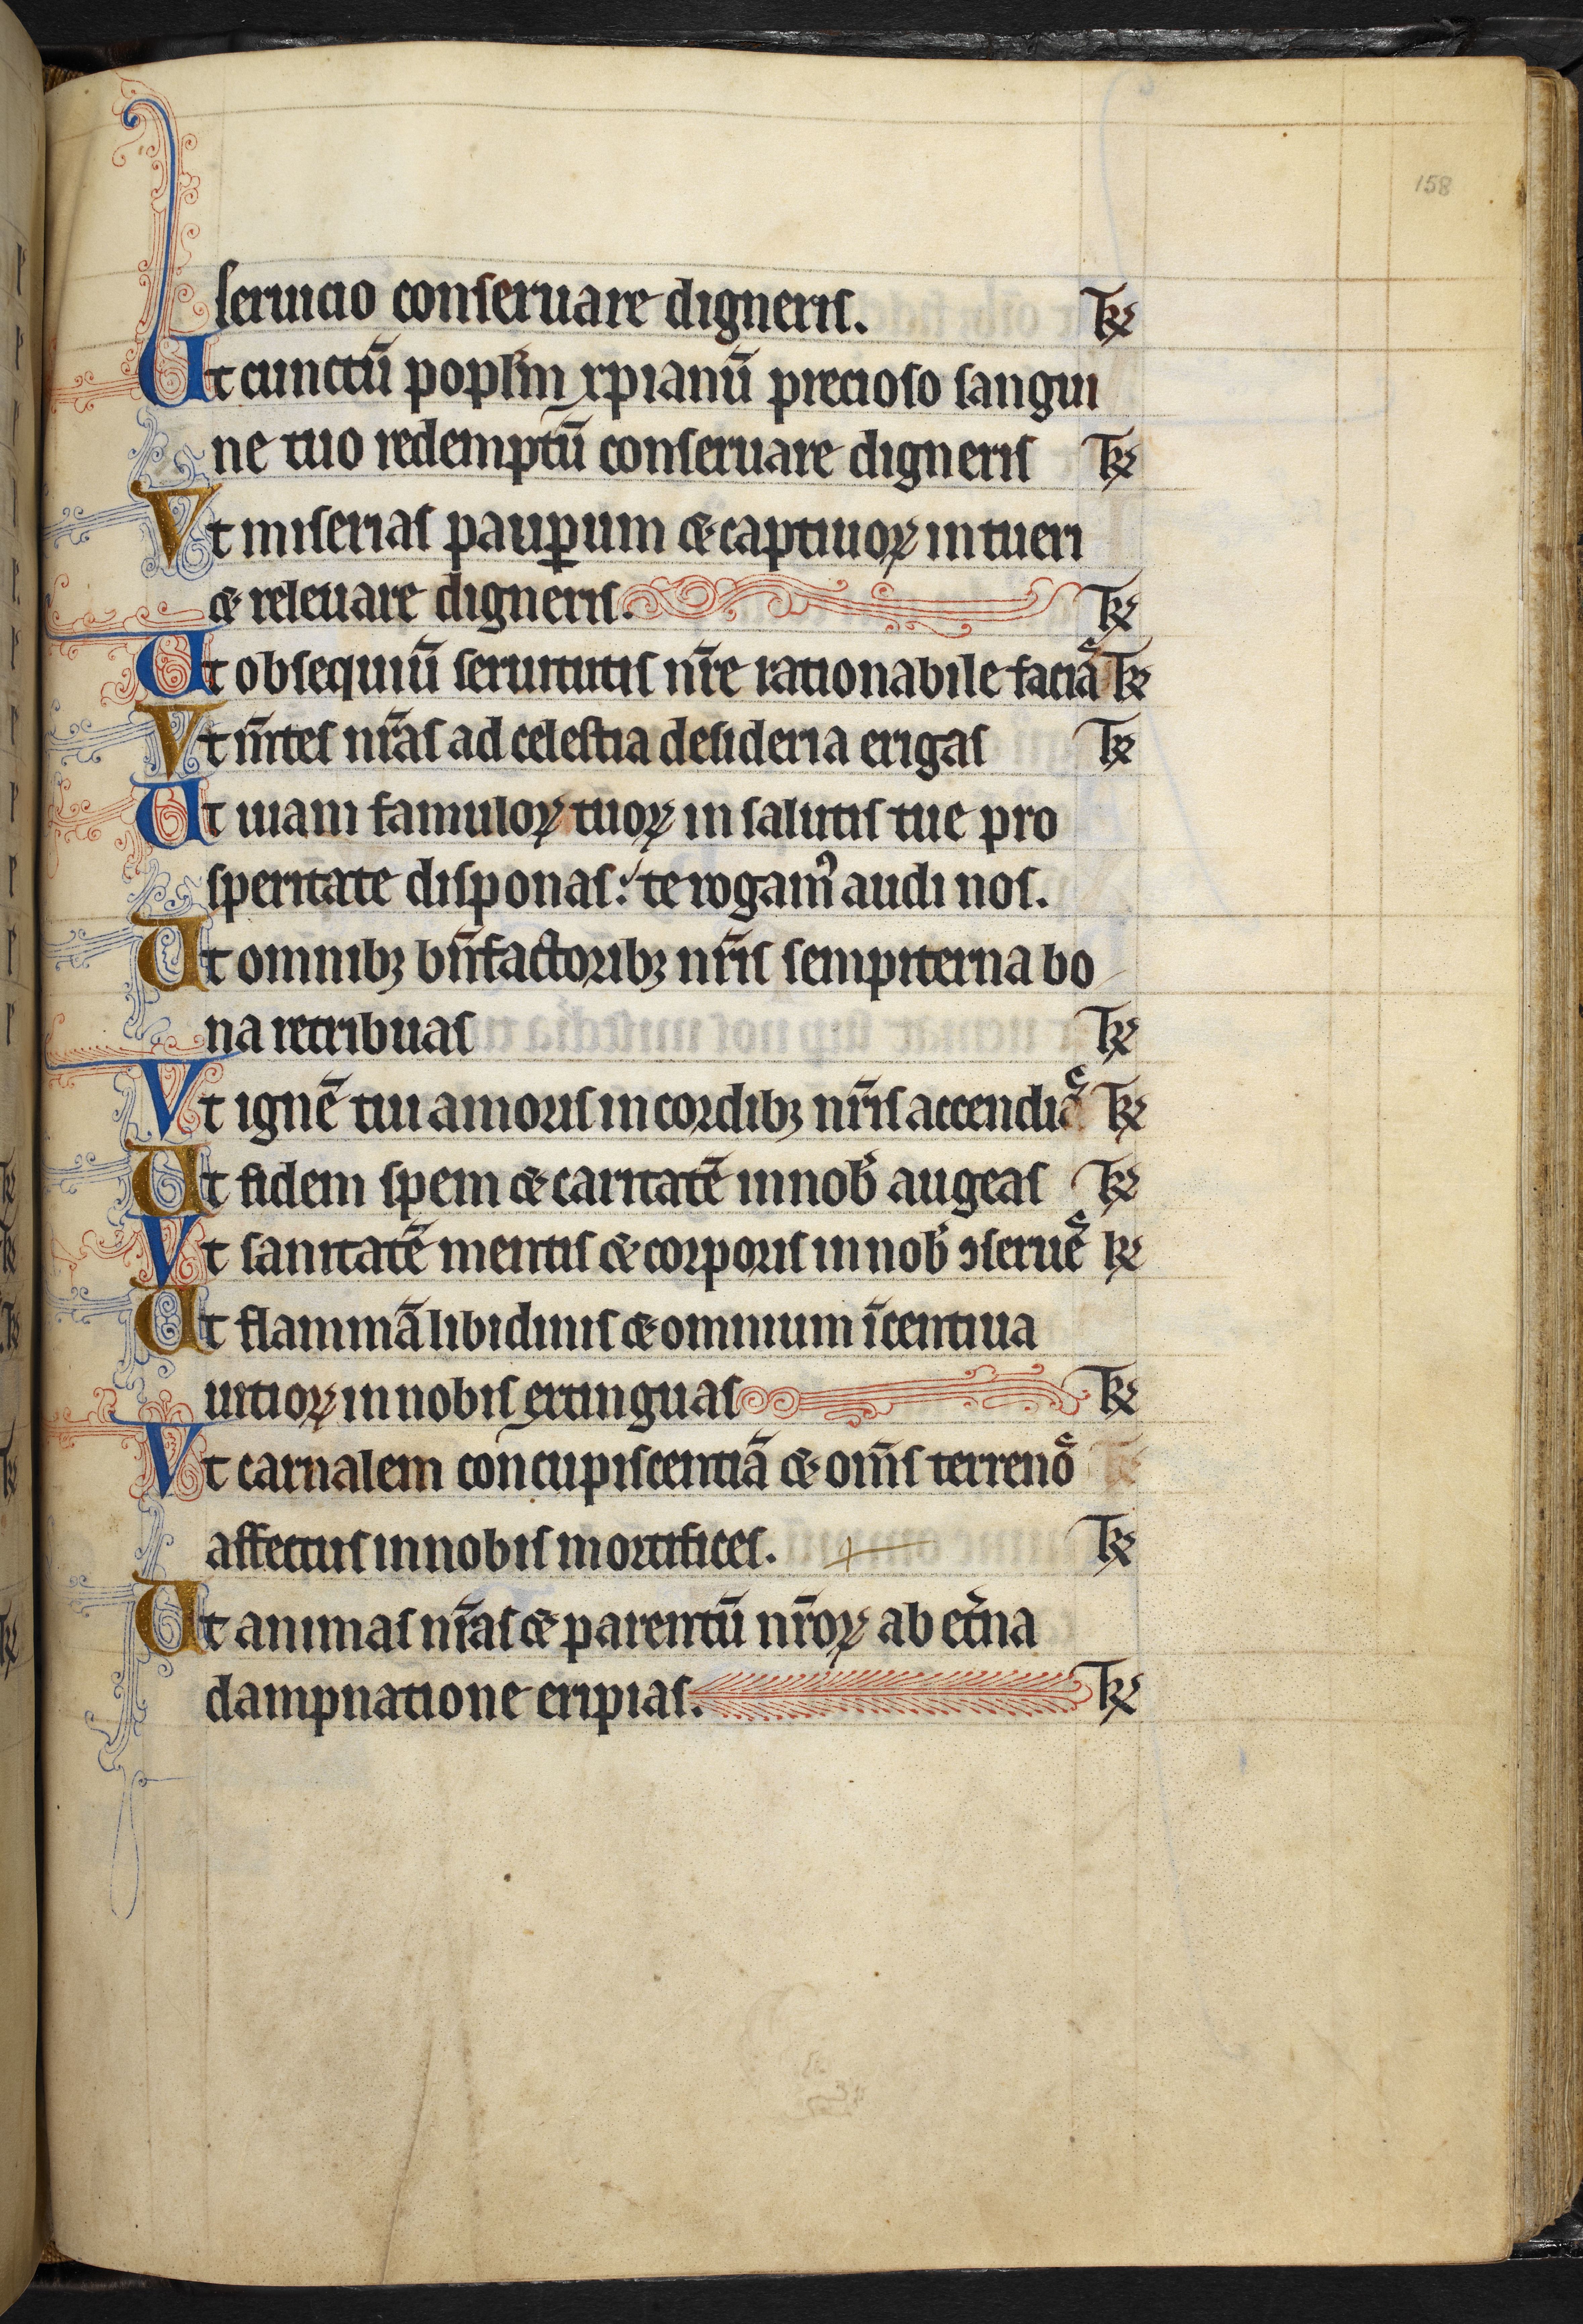 158
seruicio conseruare digneris. Tꝶ
Ut cunctū popl̄m xpianū precioso sangui
ne tuo redemptū conseruare digneris Tꝶ
Vt miserias paup̲um & captiuoꝝ intueri
& releuare digneris. Tꝶ
Ut obsequiū seruitutis nr̄e rationabile faciaˢ Tꝶ
Vt m̄tes nr̄as ad celestia desideria erigas Tꝶ
Ut uiam famuloꝝ tuoꝝ in salutis tue pro
speritate disponas: te rogamꝰ audi nos.
Ut omnibꝫ bn̄factoribꝫ nr̄is sempiterna bo
na retribuas Tꝶ
Vt ignē tui amoris in cordibꝫ nr̄is accendaˢ Tꝶ
Ut fidem spem & caritatē in nob̄ augeas Tꝶ
Vt sanitatē mentis & corporis in nob̄ ꝯserueˢ ꝶ
Ut flammā libidinis & omnium īcentiua
uitioꝝ in nobis extinguas Tꝶ
Vt carnalem concupiscentiā & om̄s terrenoˢ
affectus in nobis mortifices. Tꝶ
Ut animas nr̄as & parentū nr̄oꝝ ab et̾na
dampnatione eripias. Tꝶ